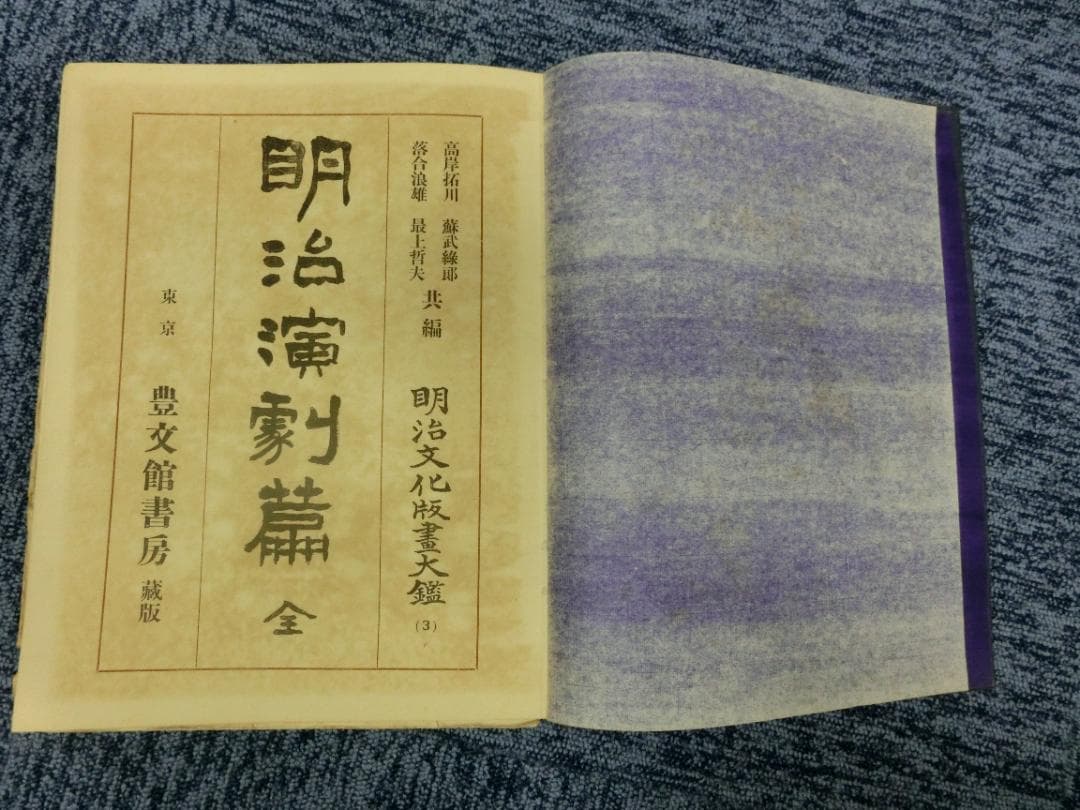 高岸拓川　蘇武綠郎
落合浪雄　最上哲夫
共編
明治文化版畫大鑑
(3)
明治演劇篇　全
東京　豊文館書房　藏版